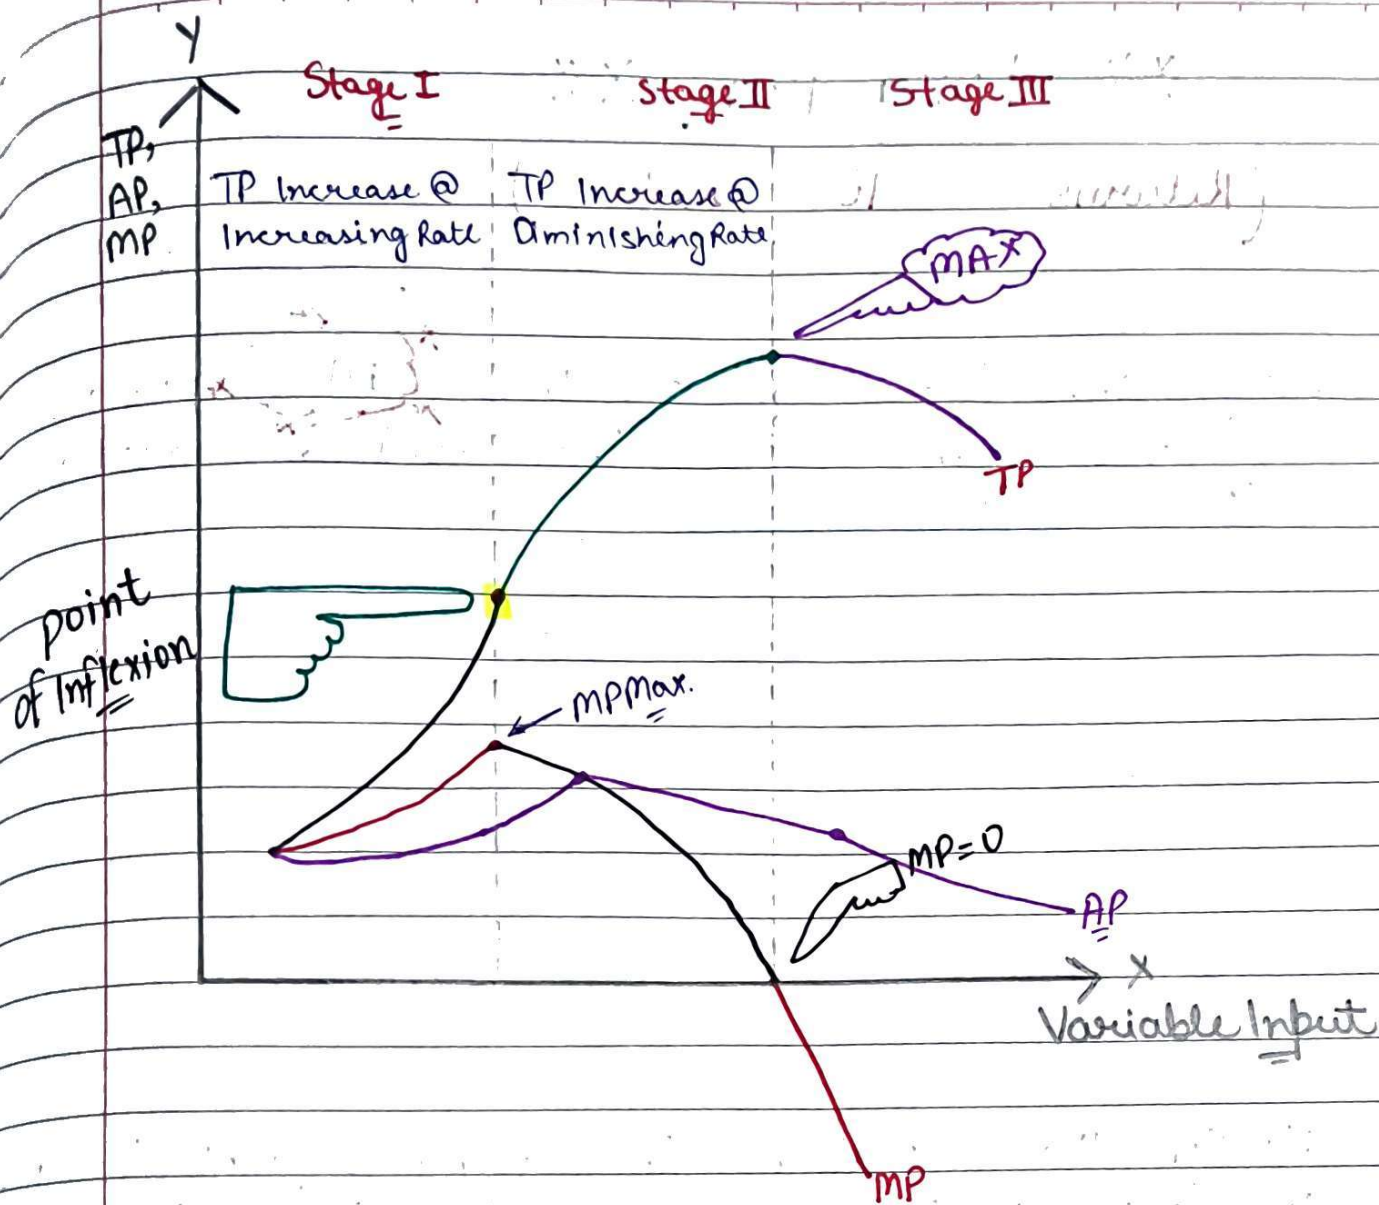 Y
Stage I
Stage II
Stage III
TP,
AP,
MP
TP Increase @
Increasing Rate
TP Increase @
Diminishing Rate
MAX
TP
Point
of Inflexion
MP Max.
MP=0
AP
X
Variable Input
MP